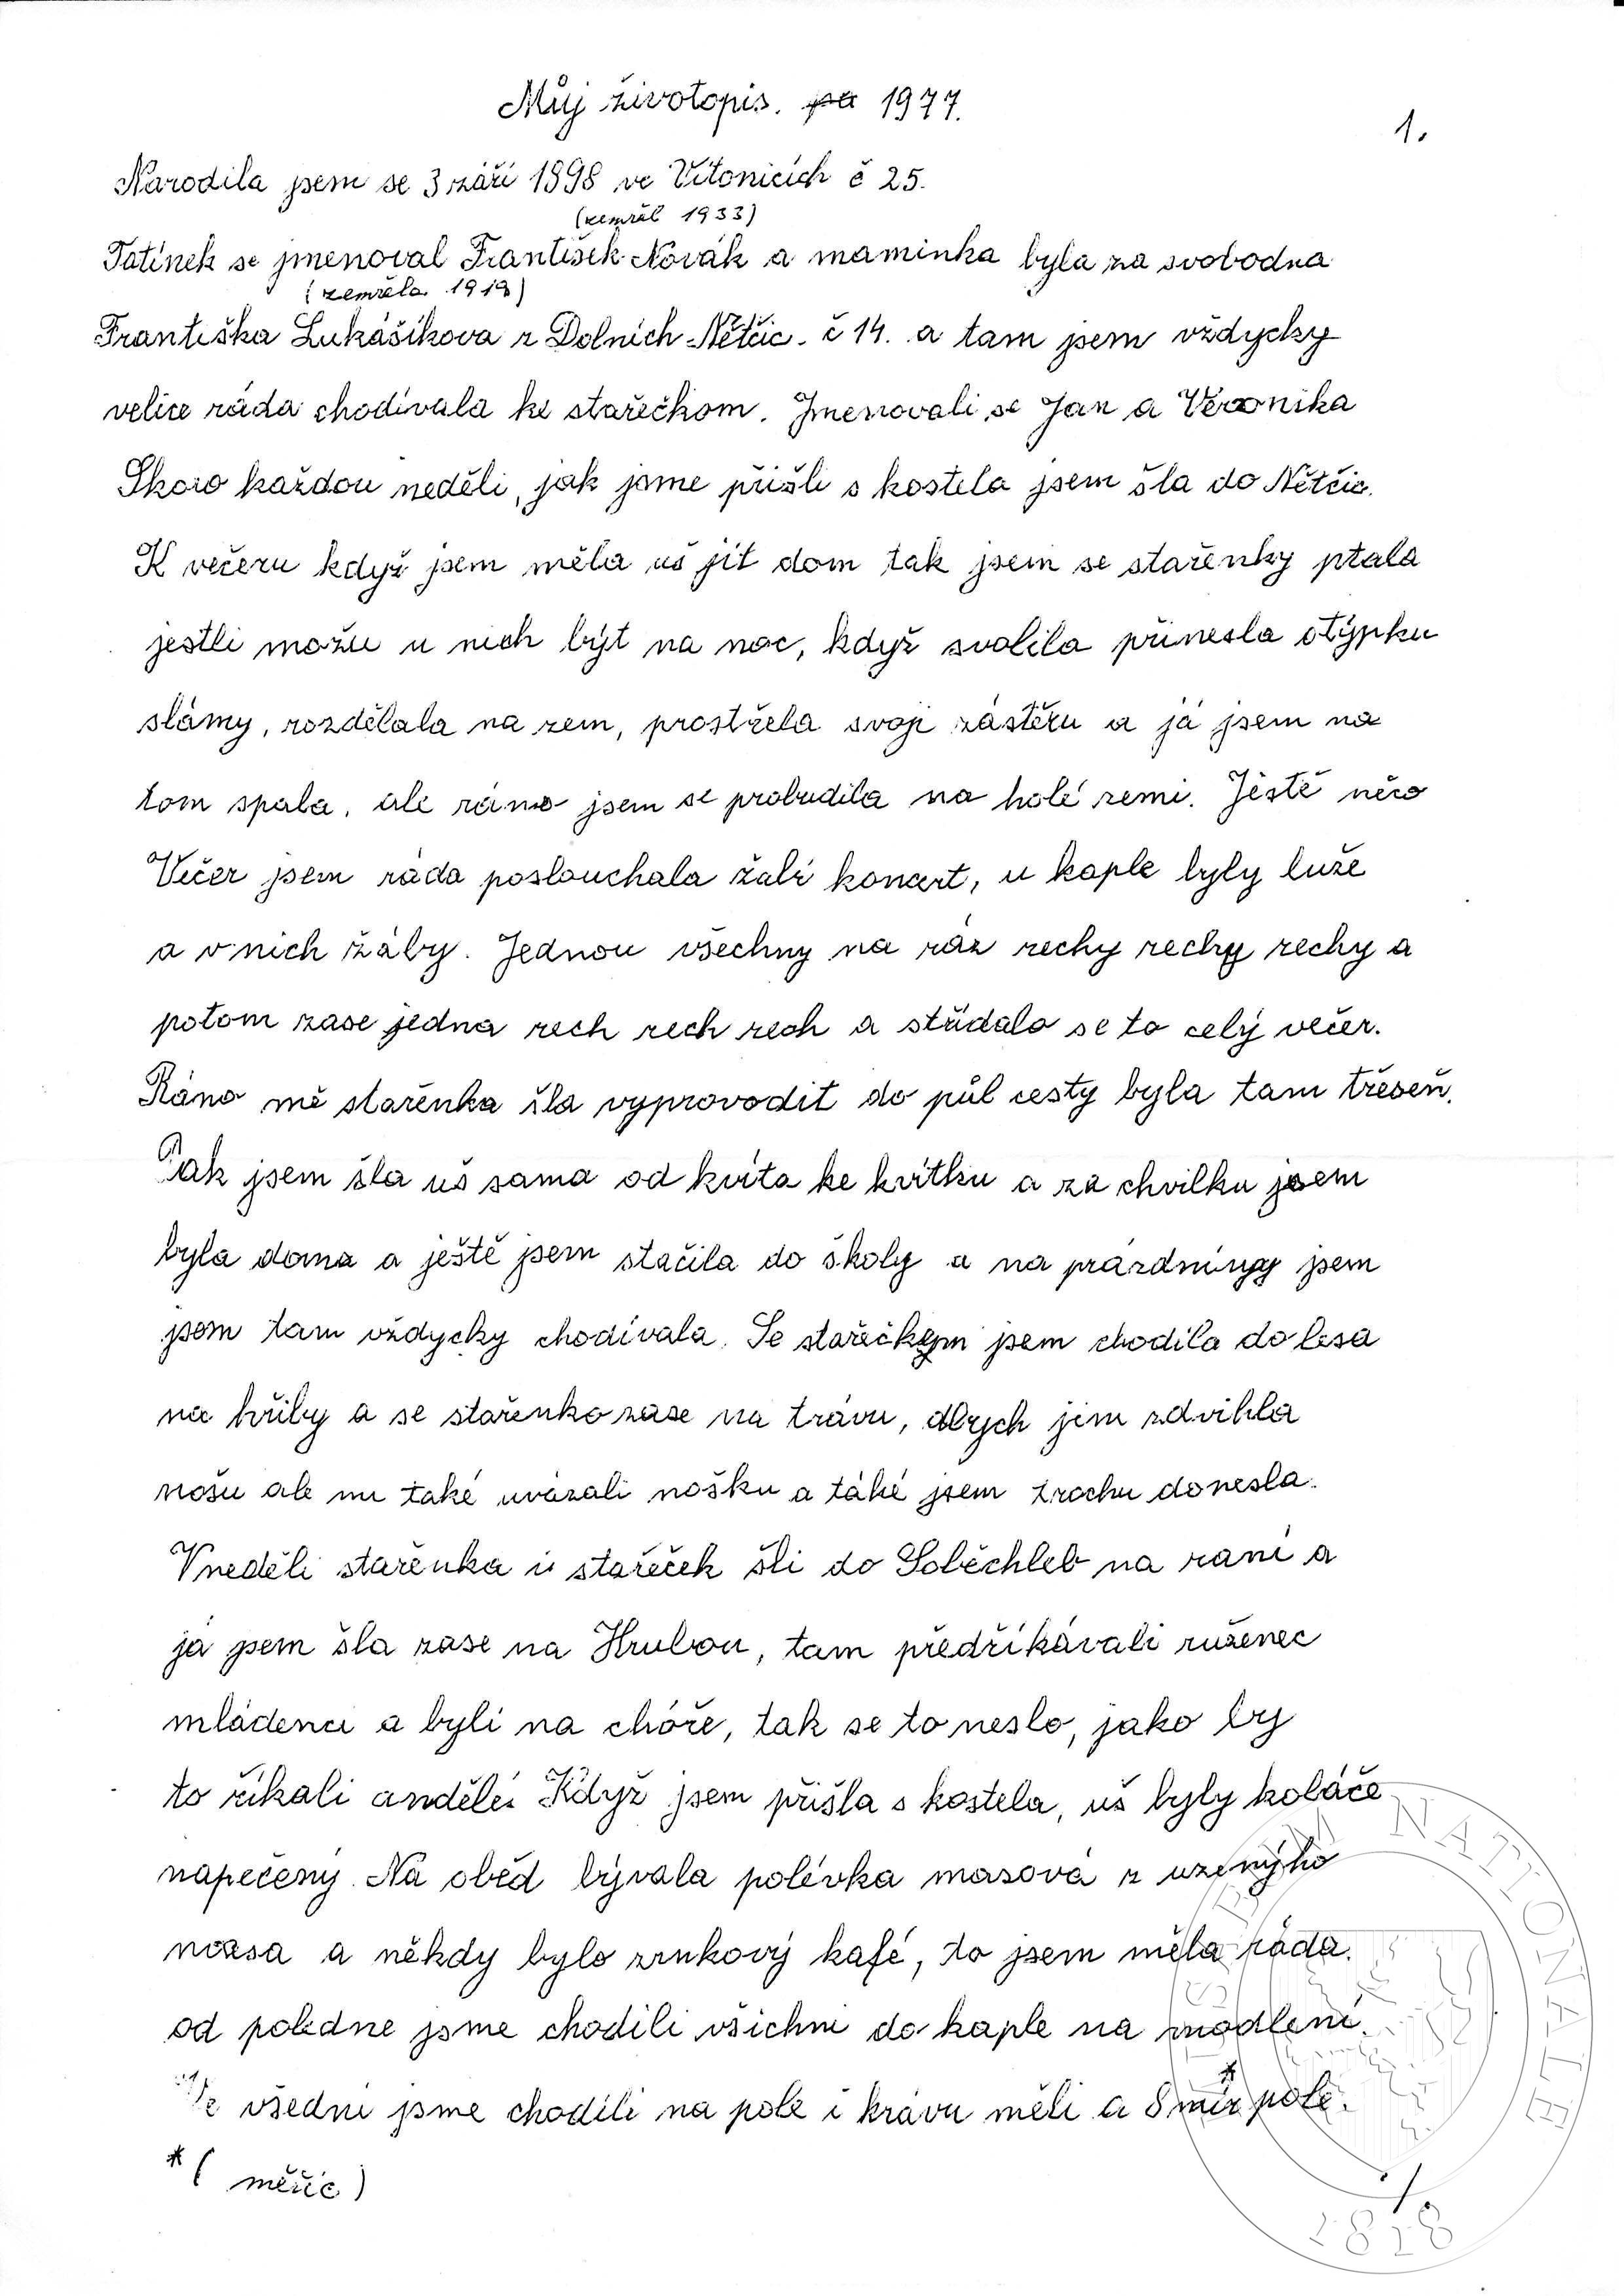 Můj životopis. pa 1977.
1.
Narodila jsem se 3 září 1898 ve Vítonicích č 25.
(zemřel 1933)
Tatínek se jmenoval František Novák a maminka byla za svobodna
(zemřela 1919)
Františka Lukášíkova z Dolních Nětčic. č 14. a tam jsem vždycky
velice ráda chodívala ke stařečkom. Jmenovali se Jan a Veronika
Skoro každou neděli, jak jsme přišli s kostela jsem šla do Nětčic.
K večeru když jsem měla uš jít dom tak jsem se stařenky ptala
jestli možu u nich být na noc, když svolila přinesla otýpku
slámy, rozdělala na zem, prostřela svoji zástěru a já jsem na
tom spala, ale ráno jsem se probudila na holé zemi. Jěště něco
Večer jsem ráda poslouchala žabí koncert, u kaple byly luže
a v nich žáby. Jednou všechny na ráz rechy rechy rechy a
potom zase jedna rech rech rech a střídalo se to celý večer.
Ráno mě stařenka šla vyprovodit do půl cesty byla tam třešeň.
Pak jsem šla uš sama od kvíta ke kvítku a za chvilku jsem
byla doma a ještě jsem stačila do školy a na prázdniny jsem
jsem tam vždycky chodívala. Se stařečkem jsem chodila do lesa
na hřiby a se stařenko zase na trávu, abych jim zdvihla
nošu ale mi také uvázali nošku a také jsem trochu donesla.
V neděli stařenka i stařeček šli do Soběchleb na raní a
já jsem šla zase na Hrubou, tam předříkávali ruženec
mládenci a byli na chóře, tak se to neslo, jako by
to říkali andělé. Když jsem přišla s kostela, uš byly koláče
napečený. Na oběd bývala polévka masová z uzenýho
masa a někdy bylo zrnkový kafé, to jsem měla ráda.
od poledne jsme chodili všichni do kaple na modlení.
Ve všední jsme chodili na pole i krávu měli a 8 mír* pole.
*( měřic)
BIBL NATIONALE
1828